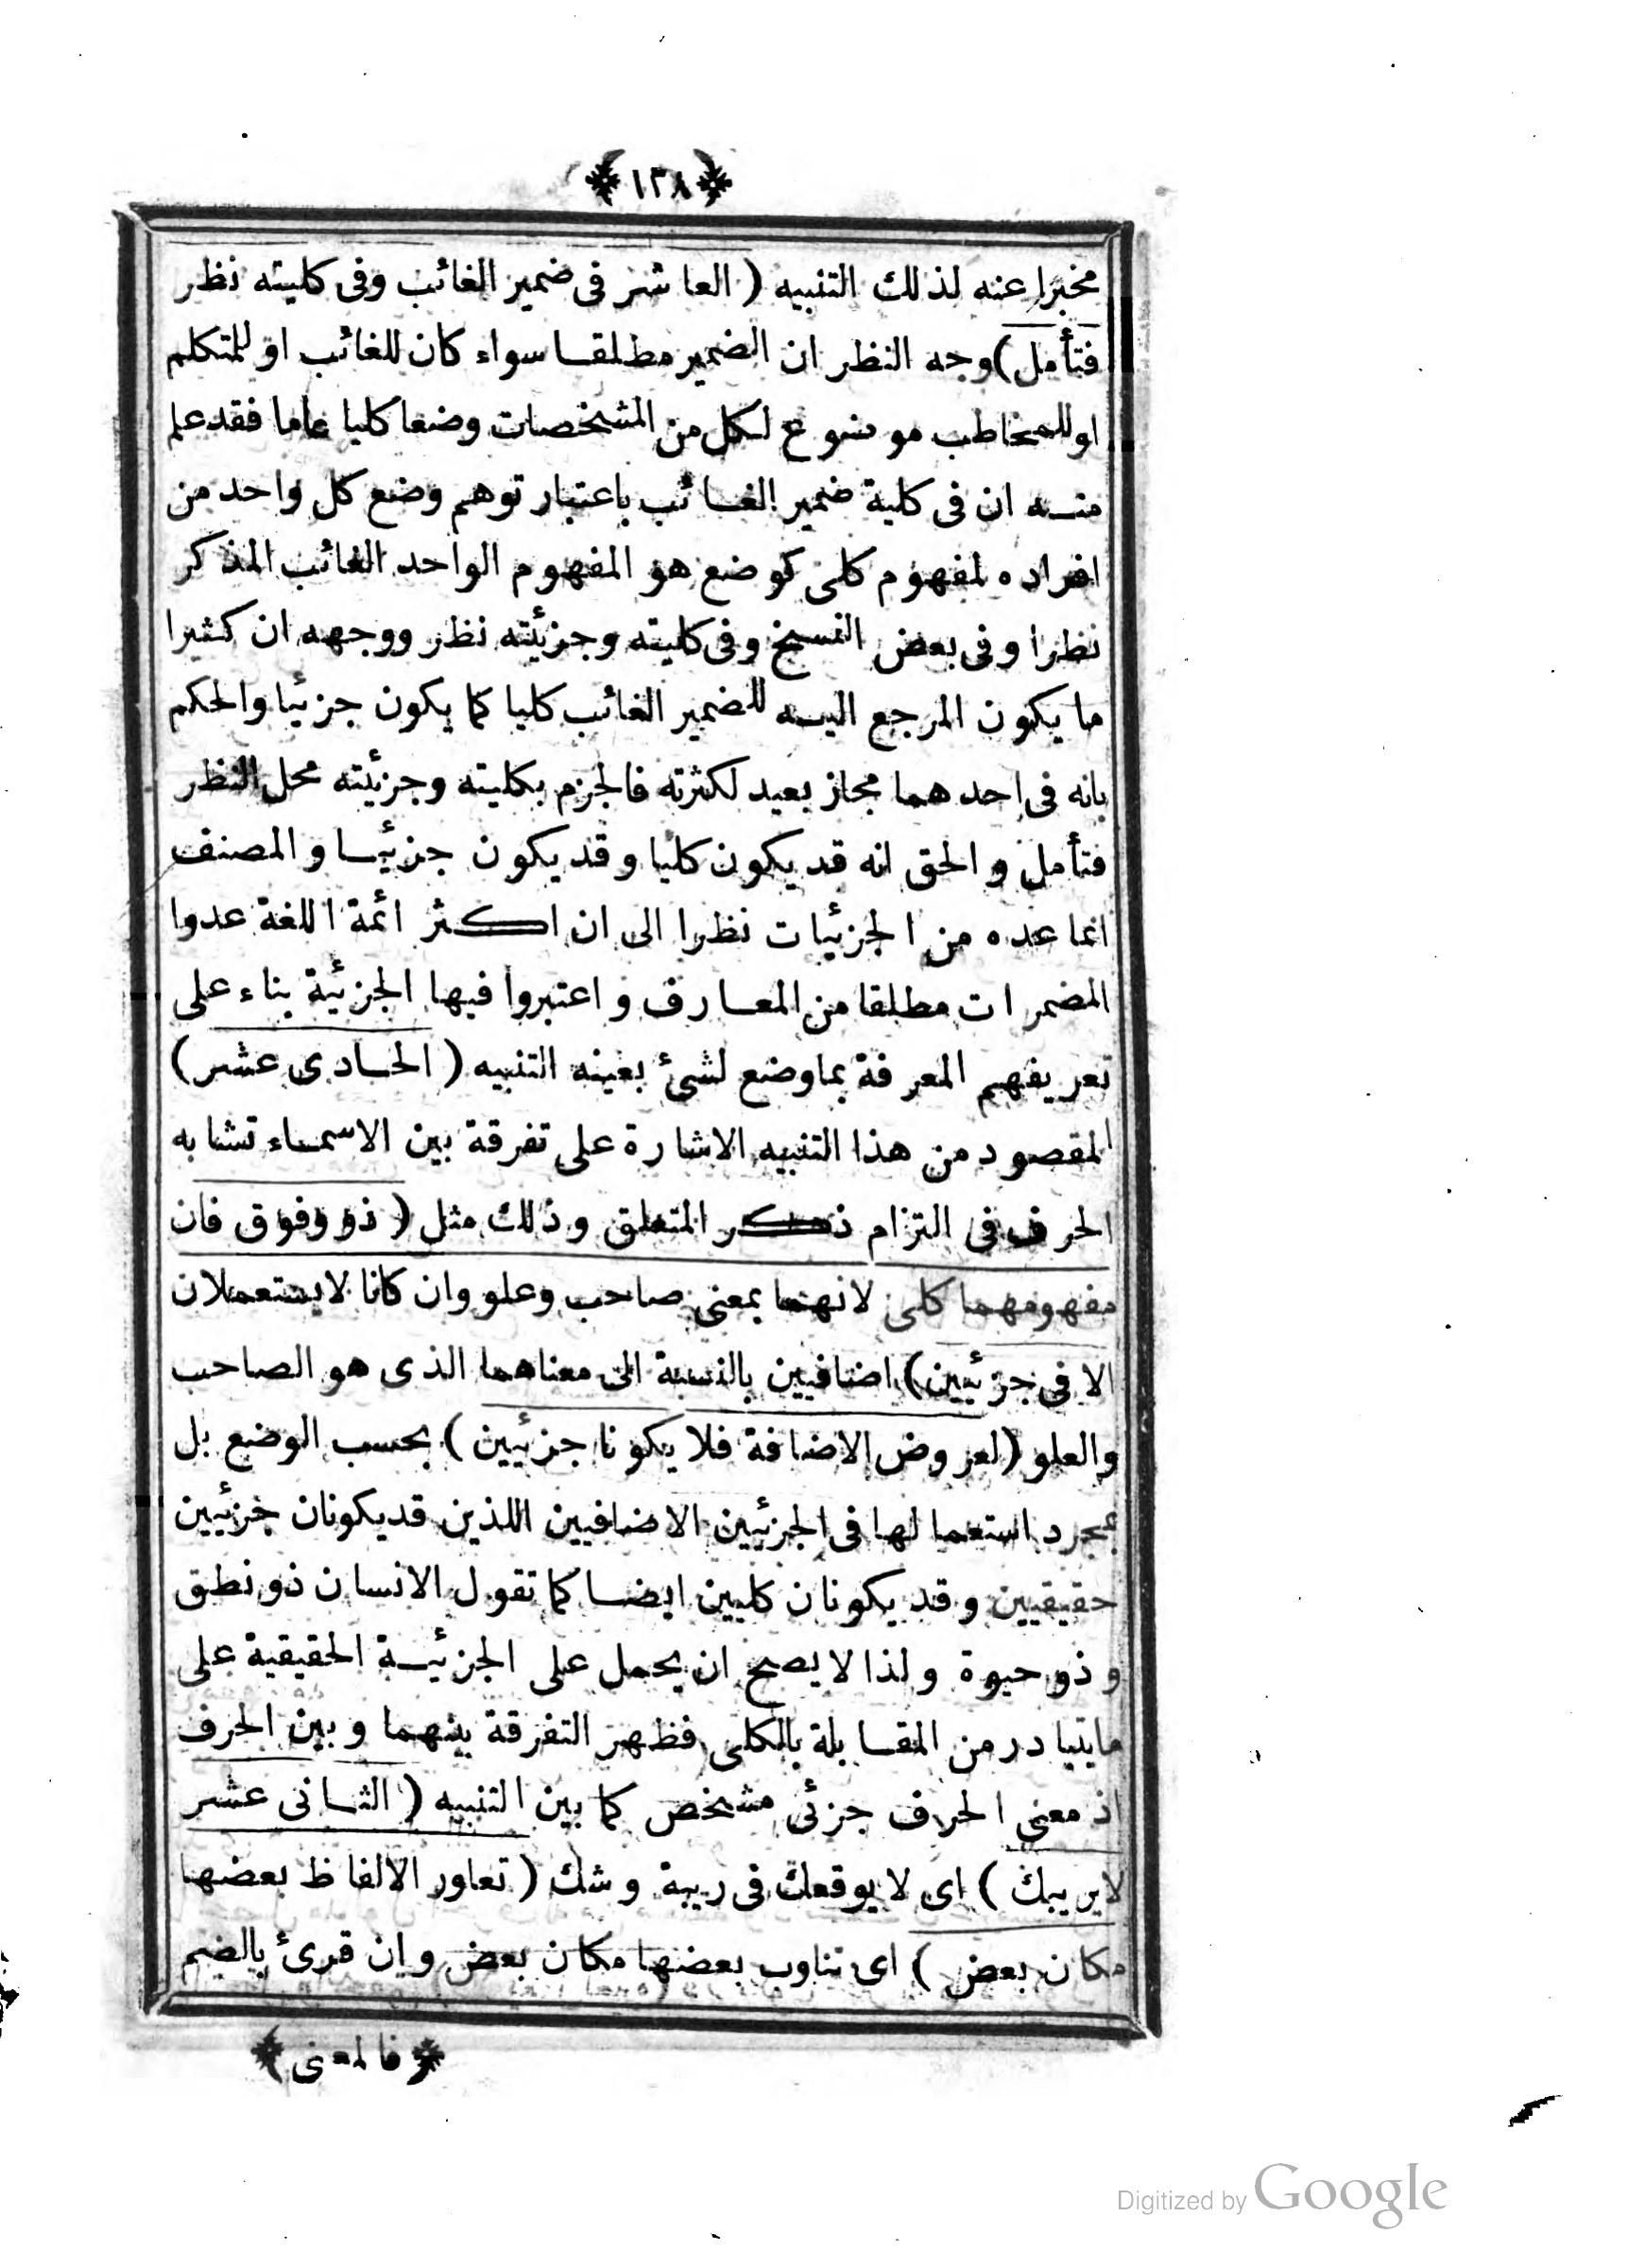 ﴿ ١٣٨ ﴾
مخبرا عنه لذلك التنبيه ( العاشر فى ضمير الغائب وفى كليته نظر
فتأمل ) وجه النظر ان الضمير مطلقا سواء كان للغائب او للمتكلم
او للمخاطب موضوع لكل من المشخصات وضعا كليا عاما فقد علم
منه ان فى كلية ضمير الغائب باعتبار توهم وضع كل واحد من
افراده لمفهوم كلى كوضع هو المفهوم الواحد الغائب المذكر
نظرا وفى بعض النسخ وفى كليته وجزئيته نظر ووجهه ان كثيرا
ما يكون المرجع اليه للضمير الغائب كليا كما يكون جزئيا والحكم
بانه فى احدهما مجاز بعيد لكثرته فالجزم بكليته وجزئيته محل النظر
فتأمل والحق انه قد يكون كليا وقد يكون جزئيا والمصنف
انما عده من الجزئيات نظرا الى ان اكثر ائمة اللغة عدوا
المضمرات مطلقا من المعارف واعتبروا فيها الجزئية بناء على
تعريفهم المعرفة بما وضع لشئ بعينه التنبيه ( الحادى عشر )
المقصود من هذا التنبيه الاشارة على تفرقة بين الاسماء تشابه
الحرف فى التزام ذكر المتعلق وذلك مثل ( ذو وفوق فان
مفهومهما كلى لانهما بمعنى صاحب وعلو وان كانا لايستعملان
الا فى جزئيين ) اضافيين بالنسبة الى معناهما الذى هو الصاحب
والعلو ( لعروض الاضافة فلا يكونا جزئيين ) بحسب الوضع بل
بمجرد استعمالها فى الجزئيين الاضافيين اللذين قديكونان جزئيين
حقيقيين وقد يكونان كليين ايضا كما تقول الانسان ذو نطق
وذو حيوة ولذا لا يصح ان يحمل على الجزئية الحقيقية على
مايتبادر من المقابلة بالكلى فظهر التفرقة بينهما وبين الحرف
اذ معنى الحرف جزئى مشخص كما بين التنبيه ( الثانى عشر
لايريبك ) اى لا يوقعك فى ريبة وشك ( تعاور الالفاظ بعضها
مكان بعض ) اى تناوب بعضها مكان بعض وان قرئ بالضم
﴿ فالمعنى ﴾
Digitized by Google